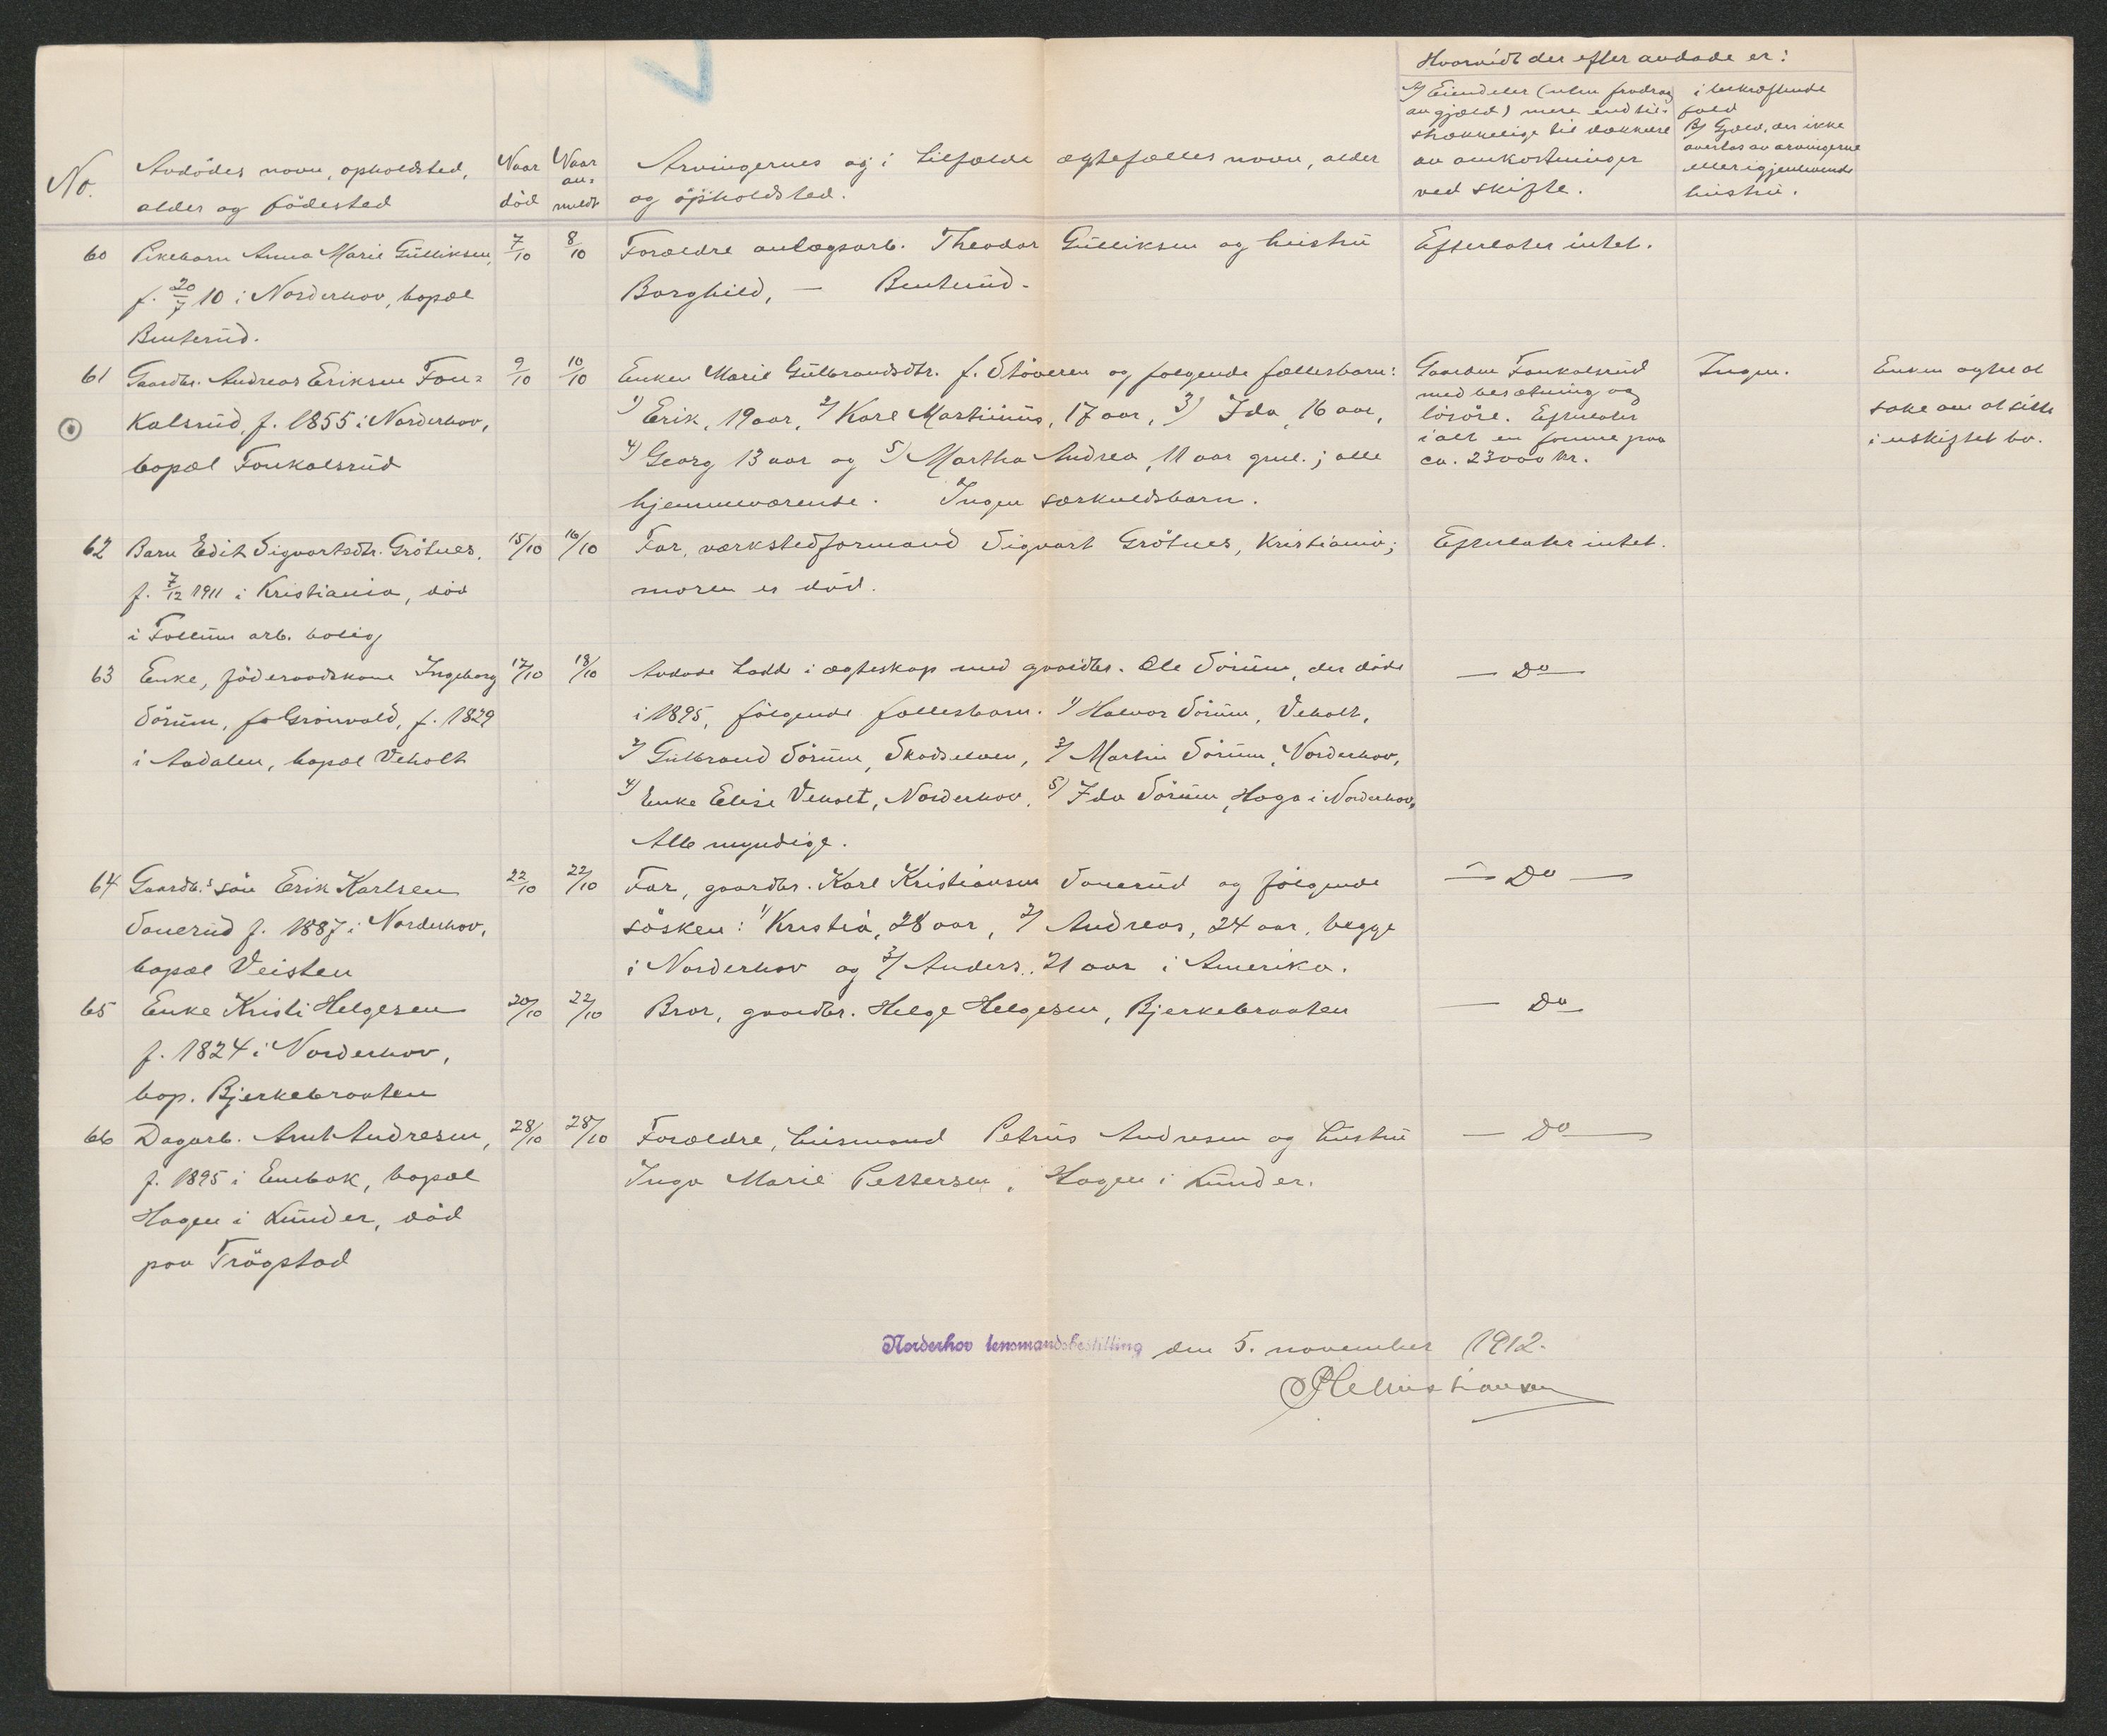 Hvorvidt der efter avdøde er:
No.
Avdödes navn, opholdsted,
alder og födested
Naar
död
Naar
an=
meldt
Arvingernes og i tilfælde egtefælles navn, alder
og opholdsted.
A/ Eiendeler (uten fradrag
av gjæld) mere end til=
strækkelige til dækkelse
av omkostninger
ved skifte.
i bekræftende
fald
B/ Gjæld, der ikke
overtas av arvingerne
eller igjenlevende
hustru.
60 Pikebarn Anna Marie Gulliksen, 7/10 8/10 Forældre anlægsarb. Theodor Gulliksen og hustru Efterlater intet.
f. 20/7 10 i Norderhov, bopæl Borghild, — Benterud.
Benterud.
61 Gaardbr. Andreas Eriksen Fon= 9/10 10/10 Enken Marie Gulbrandsdtr. f. Støveren og følgende fællesbarn: Gaarden Fonkalsrud Ingen. Enken agter at
Kalsrud, f. 1855 i Norderhov, 1) Erik, 19 aar, 2) Karl Martinius, 17 aar, 3) Ida, 16 aar, med besætning og
lösöre. Efterlater søke om at sitte
bopæl Fonkalsrud 4) Georg 13 aar og 5) Martha Andrea, 11 aar gml.; alle i alt en formue paa
ca. 23000 kr. i uskiftet bo.
hjemmeværende. Ingen særkuldsbarn.
62 Barn Edith Sigvartsdtr. Grötnes, 15/10 16/10 Far, værkstedformand Sigvart Grötnes, Kristiania; Efterlater intet.
f. 7/12 1911 i Kristiania, död moren er död.
i Follum arb. bolig
63 Enke, föderaadskone Ingeborg 17/10 18/10 Avdøde hadde i egteskap med gaardbr. Ole Sörum, der döde — Do —
Sörum, f. Grönvold, f. 1829 i 1895, følgende fællesbarn. 1) Halvor Sörum, Veholt,
i Aadalen, bopæl Veholt 2) Gulbrand Sörum, Skodselven, 3) Martin Sörum, Norderhov,
4) Enke Elise Veholt, Norderhov, 5) Ida Sörum, Haga i Norderhov.
Alle myndige.
64 Gaardb.s sön Erik Karlsen 22/10 22/10 Far, gaardbr. Karl Kristiansen Sonerud og følgende — Do —
Sonerud f. 1887 i Norderhov, søsken: 1) Kristia, 28 aar, 2) Andreas, 24 aar, begge
bopæl Veisten i Norderhov og 3) Anders, 21 aar i Amerika.
65 Enke Kristi Helgesen 20/10 22/10 Bror, gaardbr. Helge Helgesen, Bjerkebraaten — Do —
f. 1824 i Norderhov,
bop. Bjerkebraaten
66 Dagarb. Arnt Andresen, 28/10 28/10 Forældre, husmand Petrus Andresen og hustru — Do —
f. 1895 i Enebak, bopæl Inga Marie Pettersen, Hagen i Lunder.
Hagen i Lunder, död
paa Trögstad
Norderhov lensmandsbestilling den 5. november 1912.